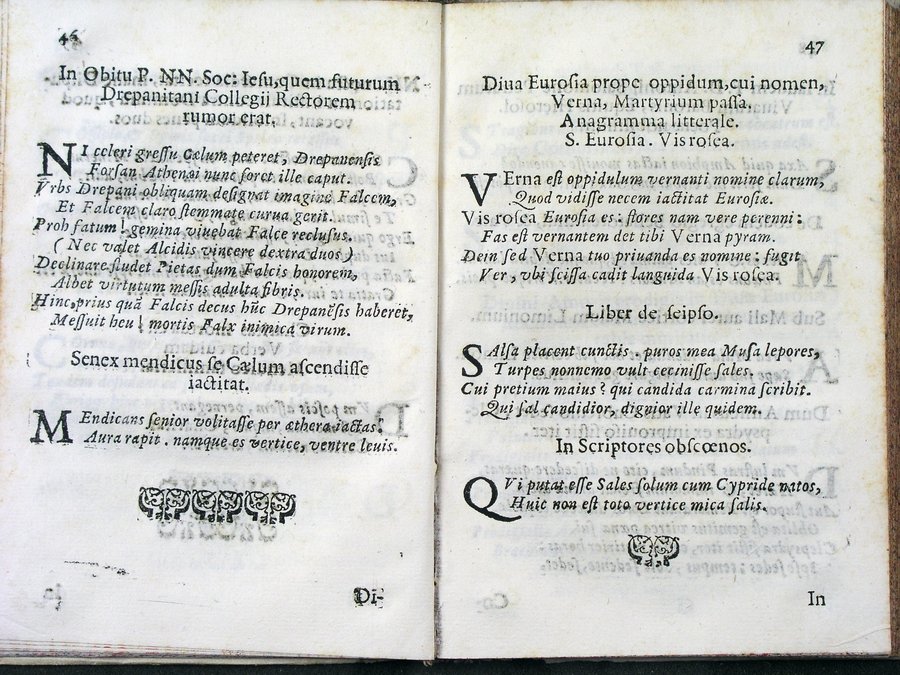 46
In Obitu P. NN. Soc: Iesu, quem futurum
Drepanitani Collegij Rectorem
rumor erat.
NI celeri gressu Cælum peteret, Drepanensis
Forsan Athenæi nunc foret ille caput.
Vrbs Drepani obliquam designat imagine Falcem,
Et Falcem claro stemmate curua gerit.
Proh fatum! gemina viuebat Falce reclusus.
( Nec valet Alcidis vincere dextra duos )
Declinare studet Pietas dum Falcis honorem,
Albet virtutum messis adulta fibris.
Hinc, prius quã Falcis decus hũc Drepanẽsis haberet,
Messuit heu! mortis Falx inimica virum.
Senex mendicus se Cælum ascendisse
iactitat.
MEndicans senior volitasse per æthera iactas:
Aura rapit. namque es vertice, ventre leuis.
Di-
47
Diua Eurosia prope oppidum, cui nomen,
Verna, Martyrium passa.
Anagramma litterale.
S. Eurosia. Vis rosea.
VErna est oppidulum vernanti nomine clarum,
Quod vidisse necem iactitat Eurosiæ.
Vis rosea Eurosia es: flores nam vere perenni:
Fas est vernantem det tibi Verna pyram.
Dein sed Verna tuo priuanda es nomine: fugit
Ver, vbi scissa cadit languida Vis rosea.
Liber de seipso.
SAlsa placent cunctis. puros mea Musa lepores,
Turpes nonnemo vult cecinisse sales.
Cui pretium maius? qui candida carmina scribit.
Qui sal candidior, dignior ille quidem.
In Scriptores obscœnos.
QVi putat esse Sales solum cum Cypride natos,
Huic non est toto vertice mica salis.
In